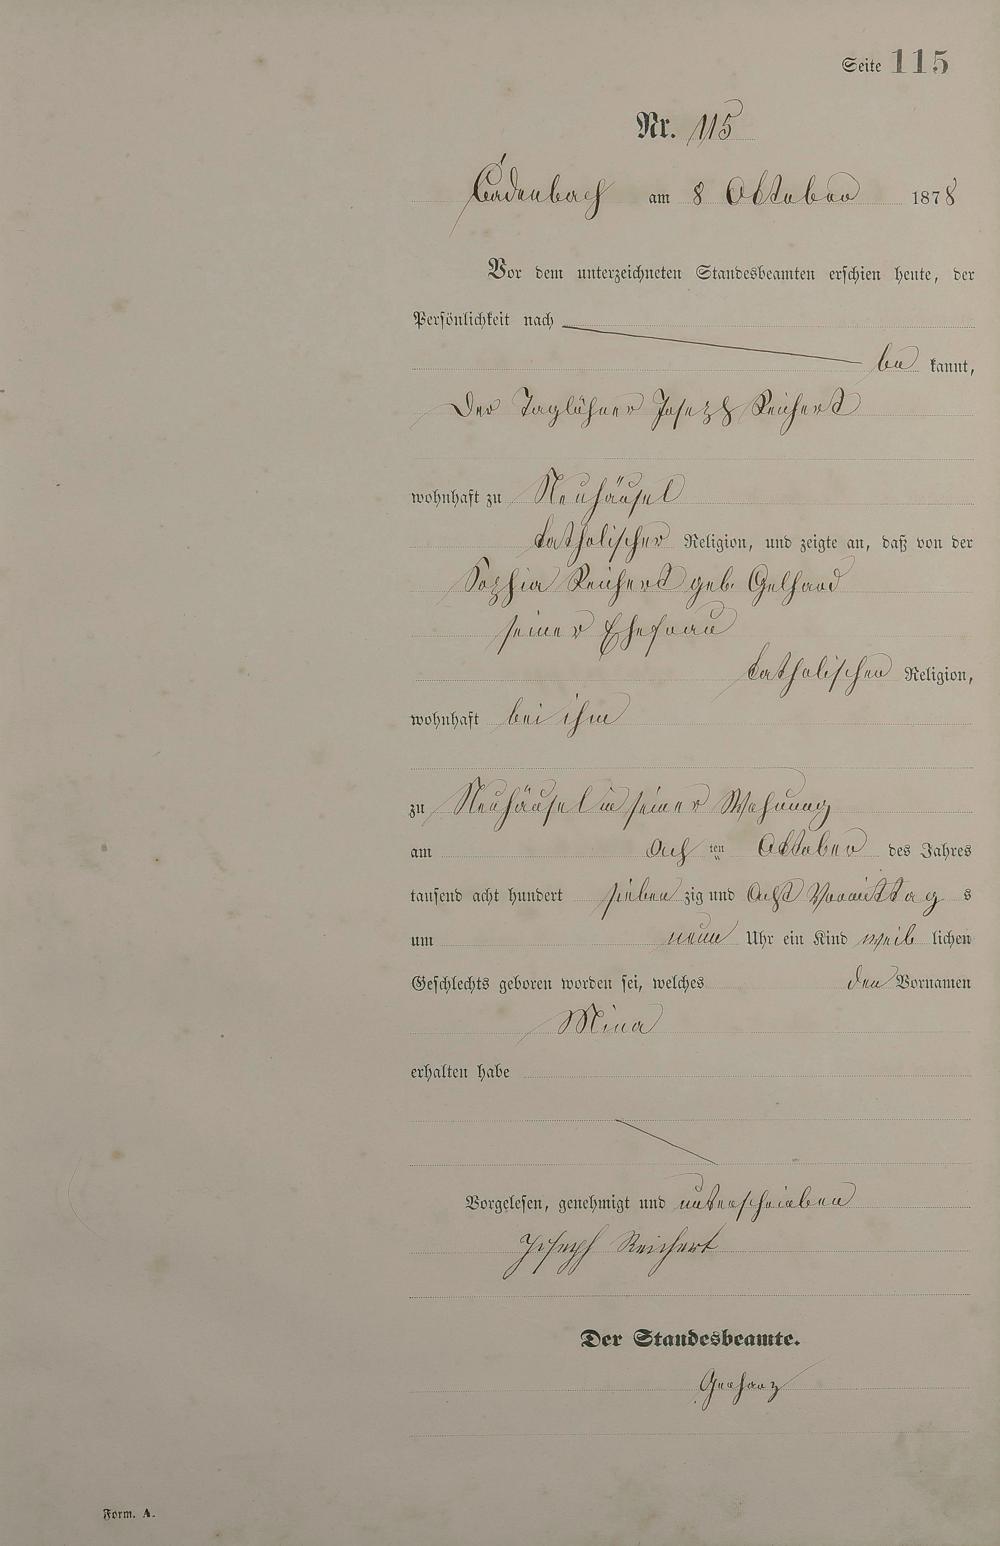 Seite 115
Nr. 115
Cadenbach am 8 Oktober 1878
Vor dem unterzeichneten Standesbeamten erschien heute, der
Persönlichkeit nach
be kannt,
der Taglöhner Joseph Reichert
wohnhaft zu Neuhäusel
katholischer Religion, und zeigte an, daß von der
Sophia Reichert geb. Gelhard
seiner Ehefrau
katholischen Religion,
wohnhaft bei ihm
zu Neuhäusel in seiner Wohnung
am Ach ten Oktober des Jahres
tausend acht hundert sieben zig und Acht Vormittag s
um neun Uhr ein Kind weib lichen
Geschlechts geboren worden sei, welches den Vornamen
Mina
erhalten habe
Vorgelesen, genehmigt und unterschrieben
Joseph Reichert
Der Standesbeamte.
Gerharz
Form. A.